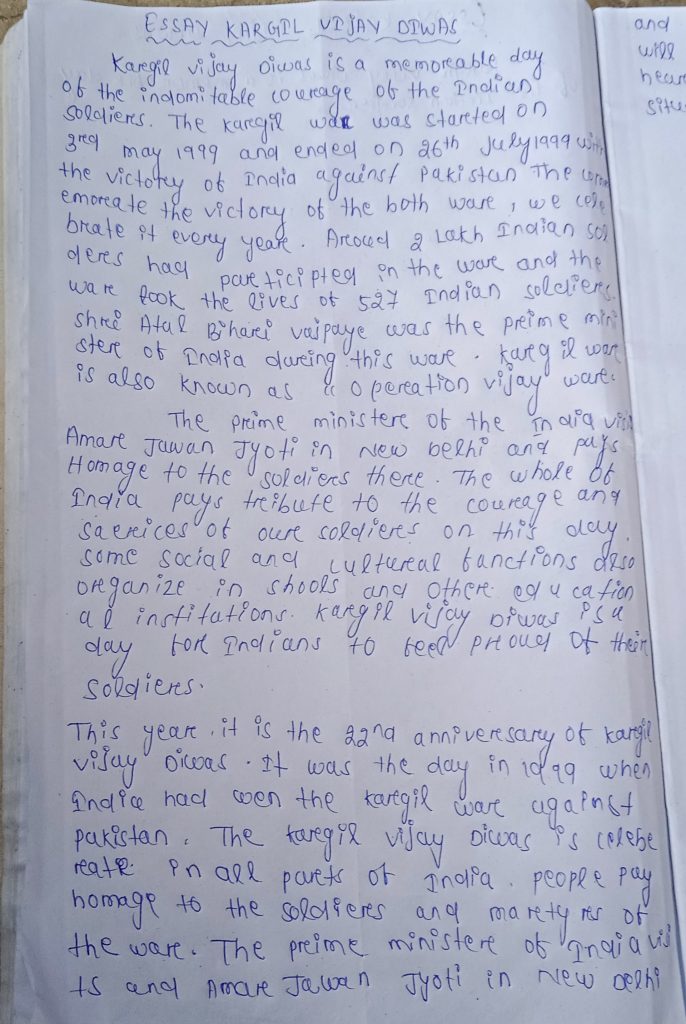 ESSAY KARGIL VIJAY DIWAS
Kargil vijay Diwas is a memorable day
of the indomitable courage of the Indian
soldiers. The kargil war was started on
3rd may 1999 and ended on 26th July 1999 with
the victory of India against Pakistan The comm
emorate the victory of the both war, we cele
brate it every year. Aroud 2 Lakh Indian sol
deres had participted in the war and the
war took the lives of 527 Indian soldiers.
shri Atal Bihari vajpaye was the prime mini
ster of India during this war. kargil war
is also known as "operation vijay" war.
The prime minister of the India visi
Amar Jawan Jyoti in New Delhi and pays
Homage to the soldiers there. The whole of
India pays tribute to the courage and
sacrices of our soldiers on this day.
some social and cultural functions also
organize in shools and other education
al institutions. kargil vijay Diwas is a
day for Indians to feel proud of their
soldiers.
This year, it is the 22nd anniversary of kargil
vijay Diwas. It was the day in 1999 when
India had won the kargil war against
pakistan. The kargil vijay Diwas is celebe
rate in all parts of India. people pay
homage to the soldiers and martyrs of
the war. The prime minister of India visi
ts and Amar Jawan Jyoti in New Delhi
and
will
hear
situ